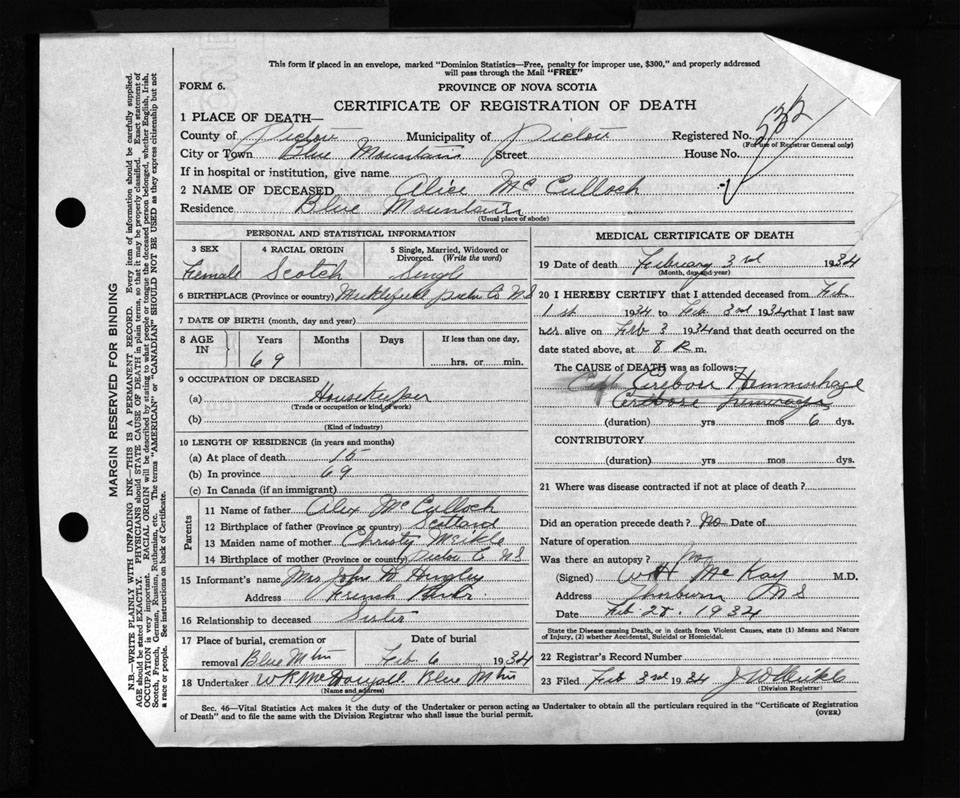 This form if placed in an envelope, marked "Dominion Statistics—Free, penalty for improper use, $300," and properly addressed
will pass through the Mail "FREE"
FORM 6.
PROVINCE OF NOVA SCOTIA
CERTIFICATE OF REGISTRATION OF DEATH
1 PLACE OF DEATH—
County of Pictou Municipality of Pictou Registered No.
(For use of Registrar General only)
City or Town Blue Mountain Street House No.
If in hospital or institution, give name
2 NAME OF DECEASED Alice McCulloch
Residence Blue Mountain
(Usual place of abode)
PERSONAL AND STATISTICAL INFORMATION
3 SEX 4 RACIAL ORIGIN 5 Single, Married, Widowed or Divorced. (Write the word)
Female Scotch Single
6 BIRTHPLACE (Province or country) Meiklefield Pictou Co NS
7 DATE OF BIRTH (month, day and year)
8 AGE IN Years Months Days If less than one day,
69 hrs. or min.
9 OCCUPATION OF DECEASED
(a) Housekeeper
(Trade or occupation or kind of work)
(b)
(Kind of industry)
10 LENGTH OF RESIDENCE (in years and months)
(a) At place of death 15
(b) In province 69
(c) In Canada (if an immigrant)
Parents
11 Name of father Alex McCulloch
12 Birthplace of father (Province or country) Scotland
13 Maiden name of mother Christy Meikle
14 Birthplace of mother (Province or country) Pictou Co NS
15 Informant's name Mrs John
Address French
16 Relationship to deceased Sister
17 Place of burial, cremation or Date of burial
removal Blue Mtn Feb 6 1934
18 Undertaker W R McDougall Blue Mtn
(Name and address)
MEDICAL CERTIFICATE OF DEATH
19 Date of death February 3rd 1934
(Month, day and year)
20 I HEREBY CERTIFY that I attended deceased from Feb
1st 1934 to Feb 3rd 1934 that I last saw
her alive on Feb 3 1934 and that death occurred on the
date stated above, at 8 m.
The CAUSE of DEATH was as follows:
Hemmorhage
(duration) yrs mos 6 dys.
CONTRIBUTORY
(duration) yrs mos dys.
21 Where was disease contracted if not at place of death?
Did an operation precede death? No Date of
Nature of operation
Was there an autopsy? No
(Signed) W H McKay M.D.
Address Thorburn NS
Date Feb 28. 1934
State the Disease causing Death, or in death from Violent Causes, state (1) Means and Nature
of Injury, (2) whether Accidental, Suicidal or Homicidal.
22 Registrar's Record Number
23 Filed Feb 3rd 1934 J W Meikle
(Division Registrar)
Sec. 46—Vital Statistics Act makes it the duty of the Undertaker or person acting as Undertaker to obtain all the particulars required in the "Certificate of Registration
of Death" and to file the same with the Division Registrar who shall issue the burial permit.
(OVER)
MARGIN RESERVED FOR BINDING
N.B.—WRITE PLAINLY WITH UNFADING INK—THIS IS A PERMANENT RECORD. Every item of information should be carefully supplied.
AGE should be stated EXACTLY. PHYSICIANS should STATE CAUSE OF DEATH in plain terms, so that it may be properly classified. Exact statement of
OCCUPATION is very important. RACIAL ORIGIN will be described by stating to what people or tongue the deceased person belonged, whether English, Irish,
Scotch, French, German, Russian, Ruthenian, etc. The terms "AMERICAN" or "CANADIAN" SHOULD NOT BE USED as they express citizenship but not
a race or people. See instructions on back of Certificate.